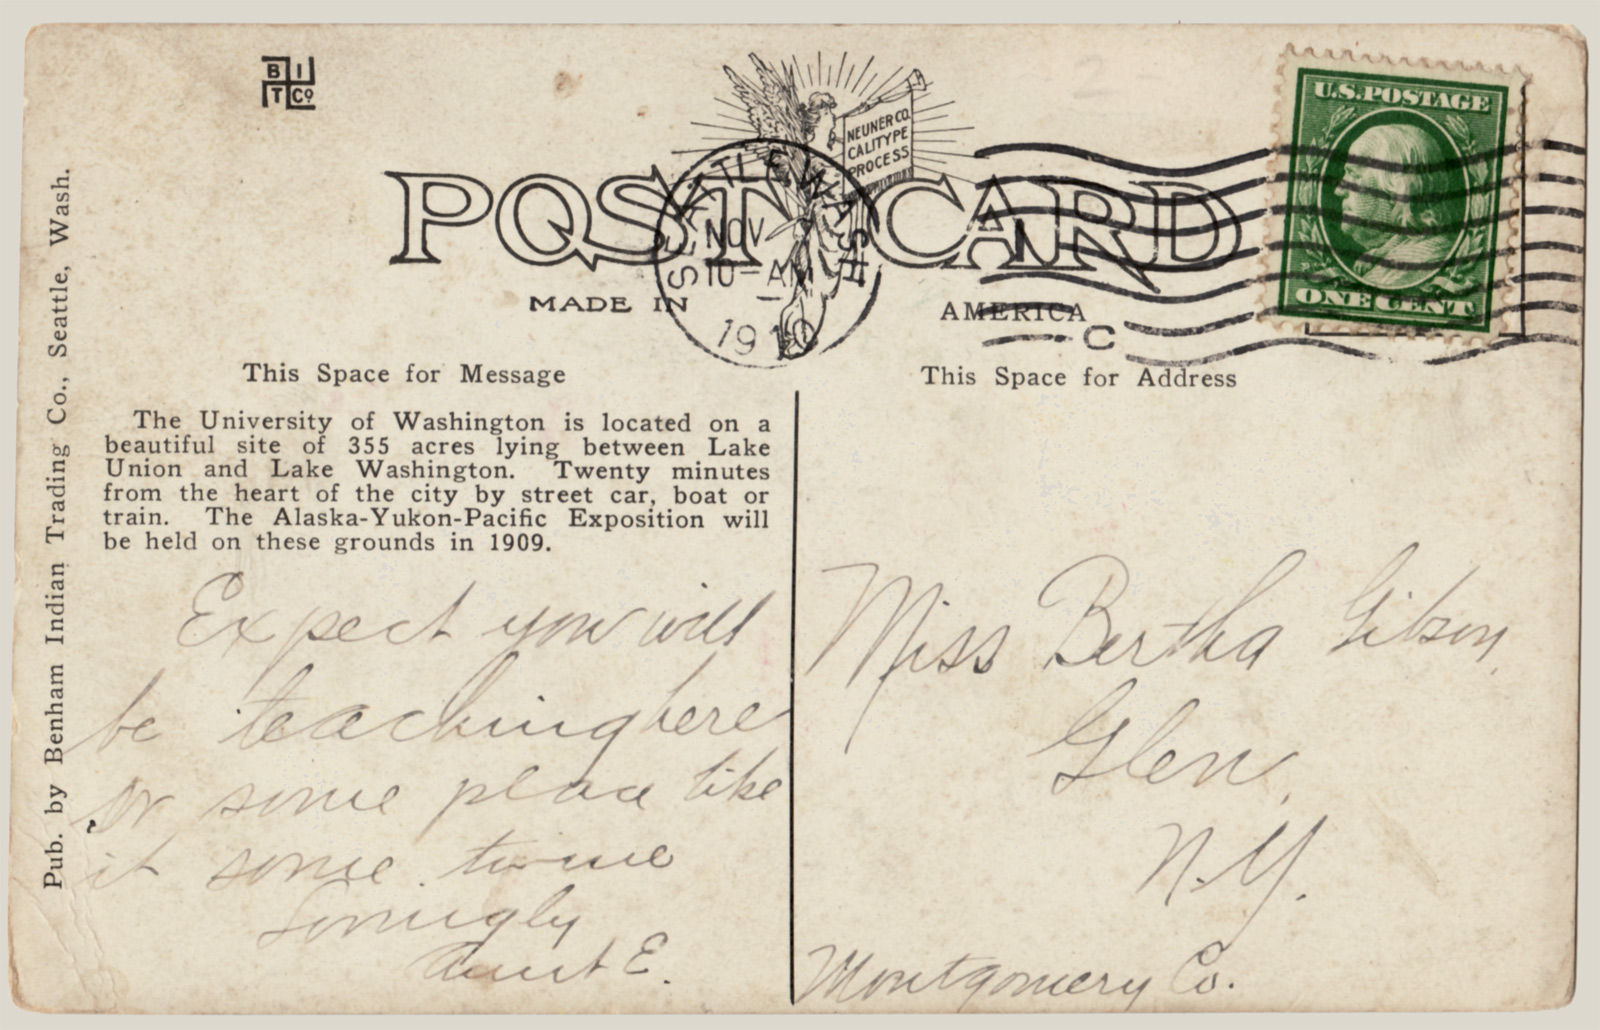 B I
T Co
NEUNER CO.
CALITYPE
PROCESS
U.S. POSTAGE
ONE CENT
POST CARD
SEATTLE, WASH.
NOV
10-AM
1910
MADE IN AMERICA
C
Pub. by Benham Indian Trading Co., Seattle, Wash.
This Space for Message
The University of Washington is located on a
beautiful site of 355 acres lying between Lake
Union and Lake Washington. Twenty minutes
from the heart of the city by street car, boat or
train. The Alaska-Yukon-Pacific Exposition will
be held on these grounds in 1909.
Expect you will
be teaching here
or some place like
it some time
Lovingly
Aunt E.
This Space for Address
Miss Bertha Gibson,
Glen,
N.Y.
Montgomery Co.